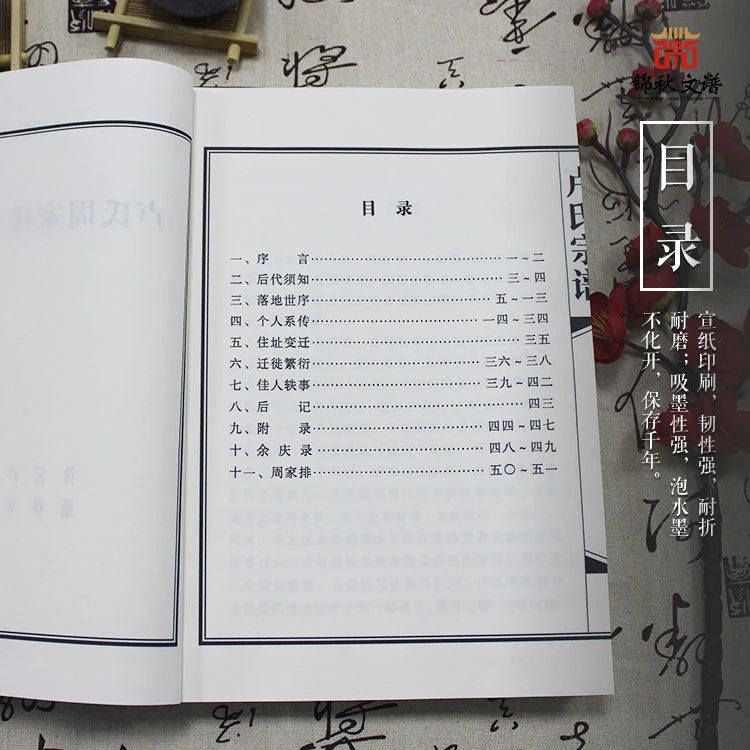 目录
一、序　言……一～二
二、后代须知……三～四
三、落地世序……五～一三
四、个人系传……一四～三四
五、住址变迁……三五
六、迁徙繁衍……三六～三八
七、佳人轶事……三九～四二
八、后　记……四三
九、附　录……四四～四七
十、余庆录……四八～四九
十一、周家排……五〇～五一
卢氏宗谱
锦秋文谱
目录
宣纸印刷，韧性强，耐折
耐磨；吸墨性强，泡水墨
不化开，保存千年。
卢氏周家